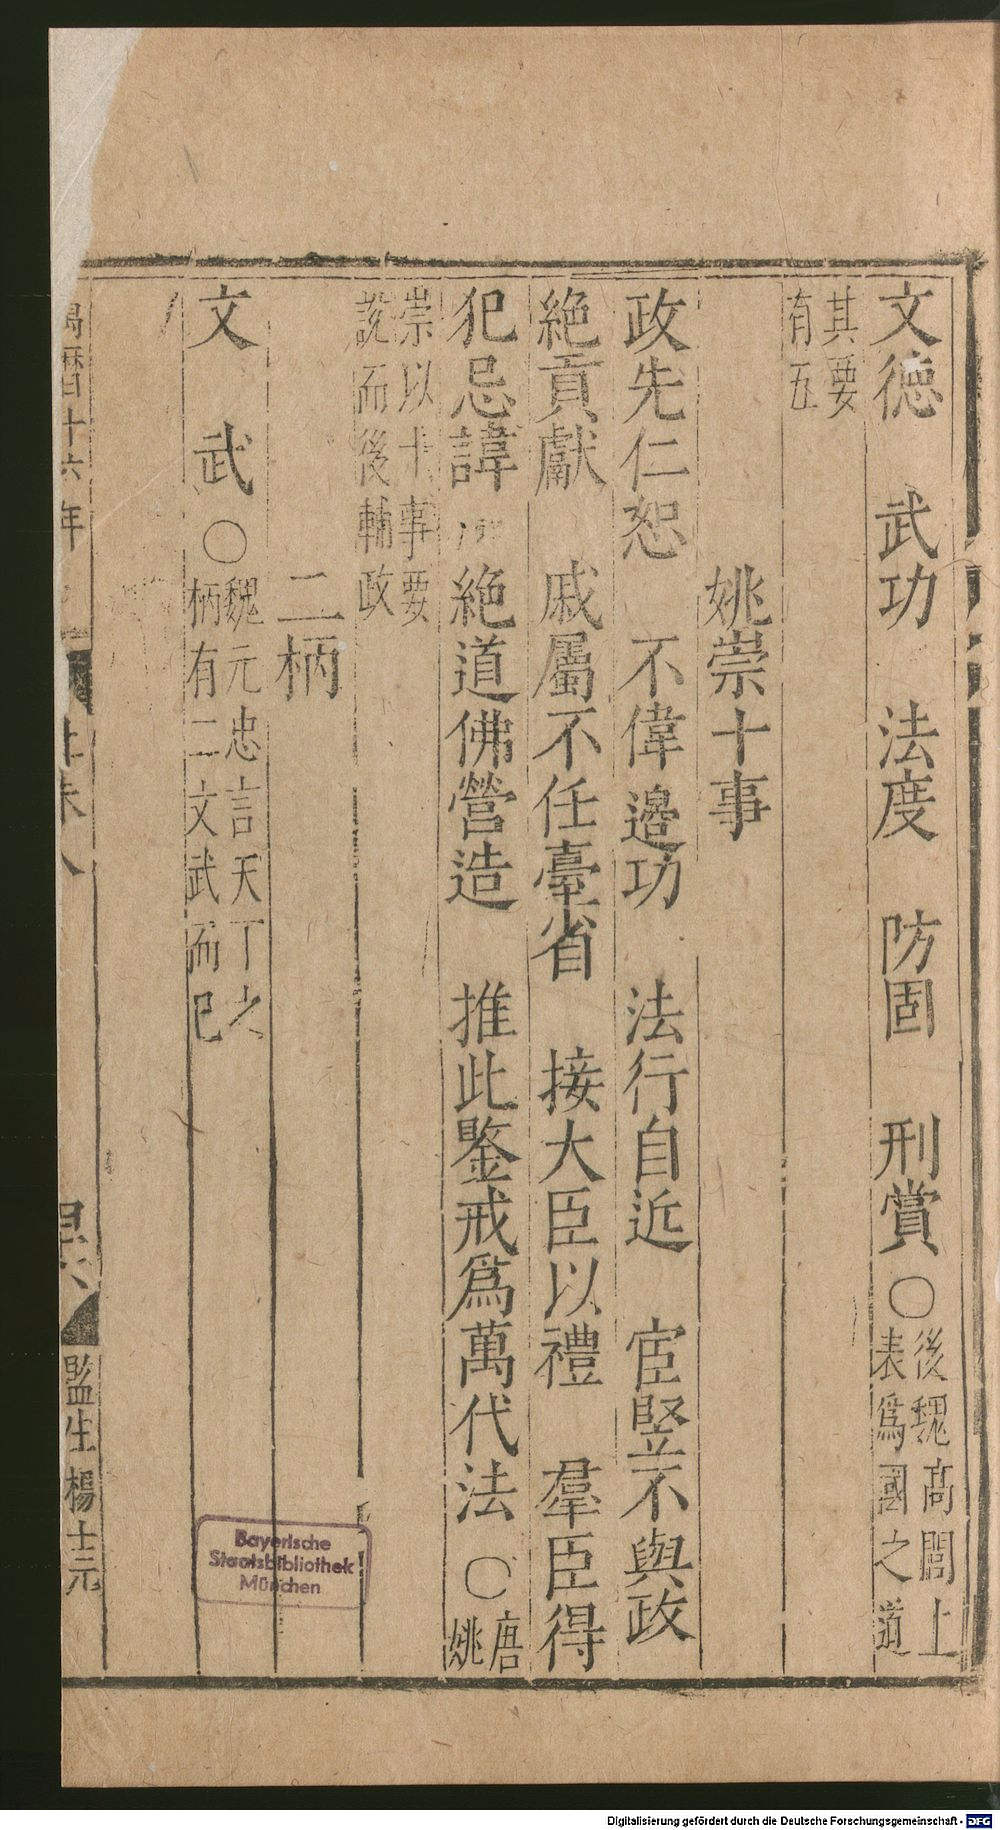 文德　武功　法度　防固　刑賞　○後魏高閭上表爲國之道
其要有五
姚崇十事
政先仁恕　不倖邊功　法行自近　宦竪不與政
絶貢獻　戚屬不任臺省　接大臣以禮　羣臣得
犯忌諱　絶道佛營造　推此鑒戒爲萬代法　○唐姚
崇以十事要說而後輔政
二柄
文　武　○魏元忠言天下之柄有二文武而已
萬曆十六年
卷八
監生楊士元
Bayerische
Staatsbibliothek
München
Digitalisierung gefördert durch die Deutsche Forschungsgemeinschaft - DFG